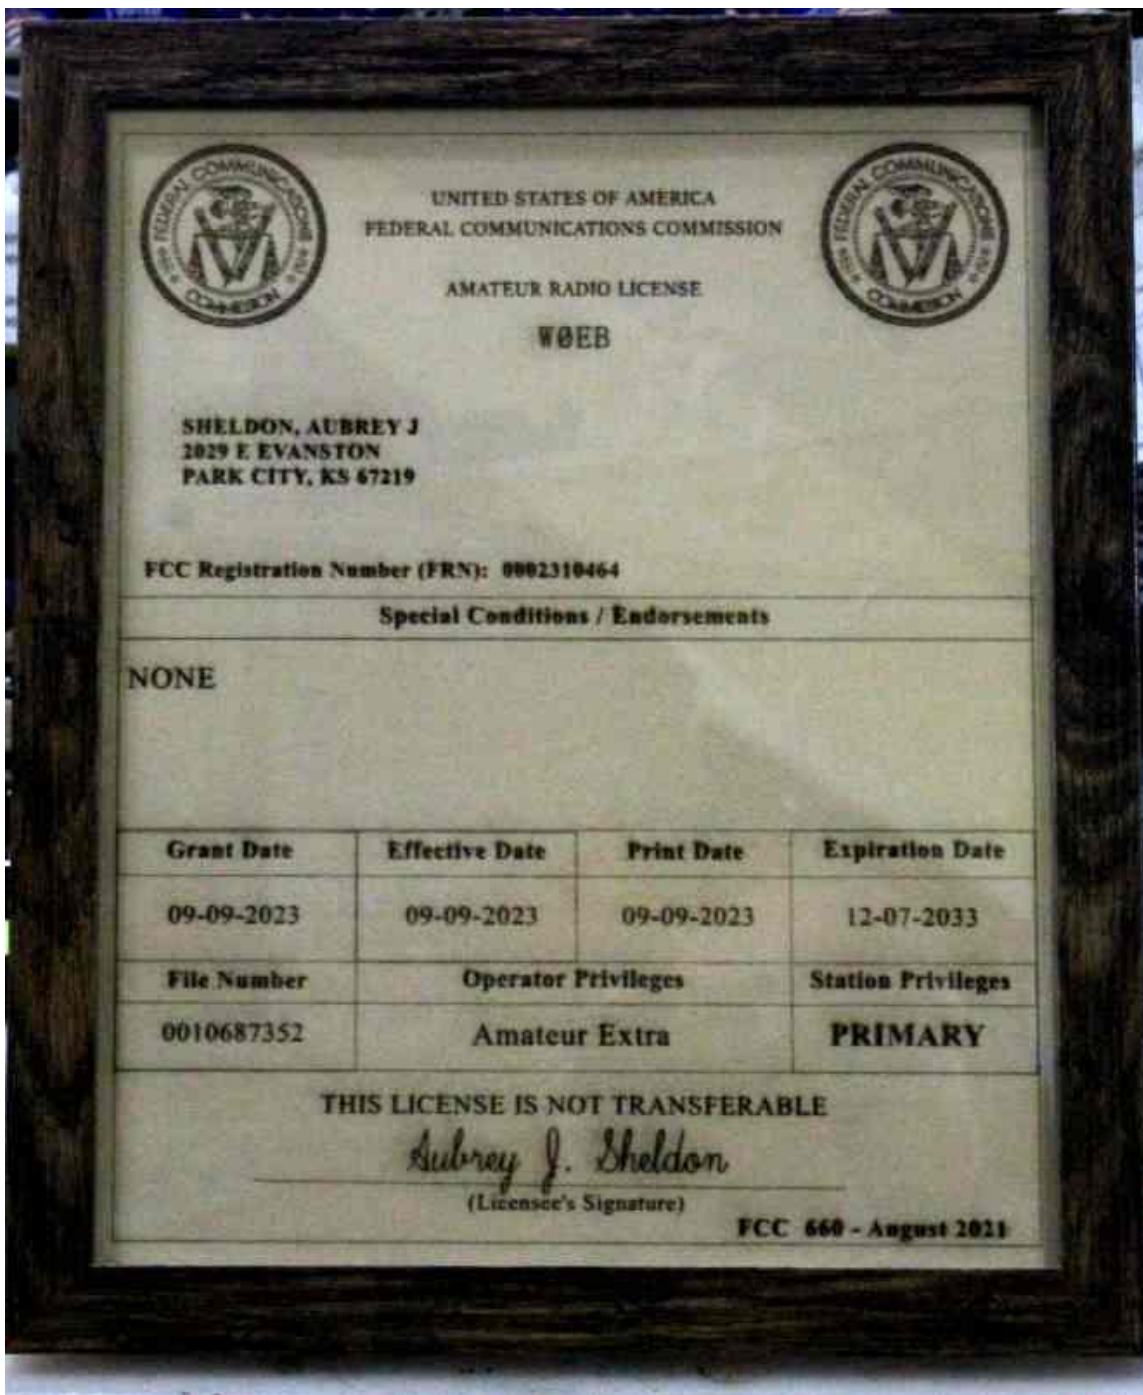 FEDERAL COMMUNICATIONS COMMISSION
FEDERAL COMMUNICATIONS COMMISSION
UNITED STATES OF AMERICA
FEDERAL COMMUNICATIONS COMMISSION
AMATEUR RADIO LICENSE
WØEB
SHELDON, AUBREY J
2029 E EVANSTON
PARK CITY, KS 67219
FCC Registration Number (FRN): 0002310464
Special Conditions / Endorsements
NONE
Grant Date Effective Date Print Date Expiration Date
09-09-2023 09-09-2023 09-09-2023 12-07-2033
File Number Operator Privileges Station Privileges
0010687352 Amateur Extra PRIMARY
THIS LICENSE IS NOT TRANSFERABLE
Aubrey J. Sheldon
(Licensee's Signature)
FCC 660 - August 2021